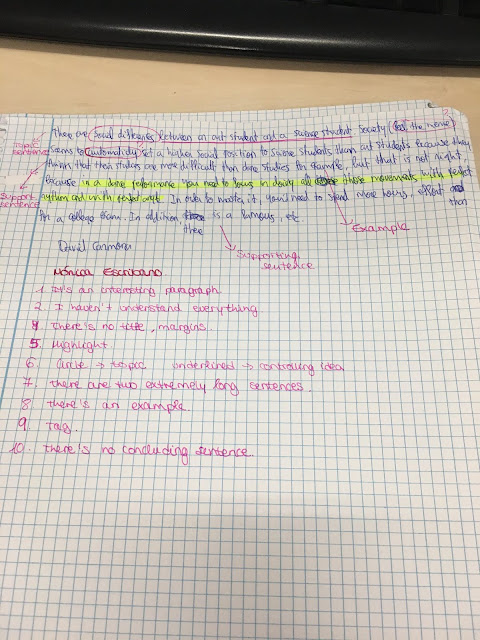 There are social differences between an art student and a science student. Society (
seems to automaticly set a higher social position to science students than art students because they
that their studies are more difficult than done studies for example, but that is not right,
Topic sentence
because in a dance performance you need to focus in doing all those movements with perfect
Support sentence
and with perfect In order to master it, you need to spend more hours, effort and
for a college exam. In addition, there is a famous, etc than
Example
Supporting sentence
David
Mónica Escribano
1. It's an interesting paragraph
2. I haven't understand everything
4. There's no title, margins.
5. Highlight
6. Circle → topic underlined → controlling idea
7. There are two extremely long sentences.
8. There's an example.
9. Tag.
10. There's no concluding sentence.